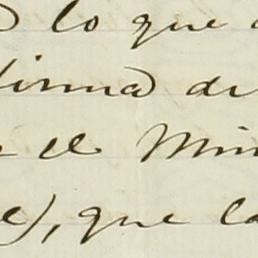 lo que
firma de
el Min
e), que la